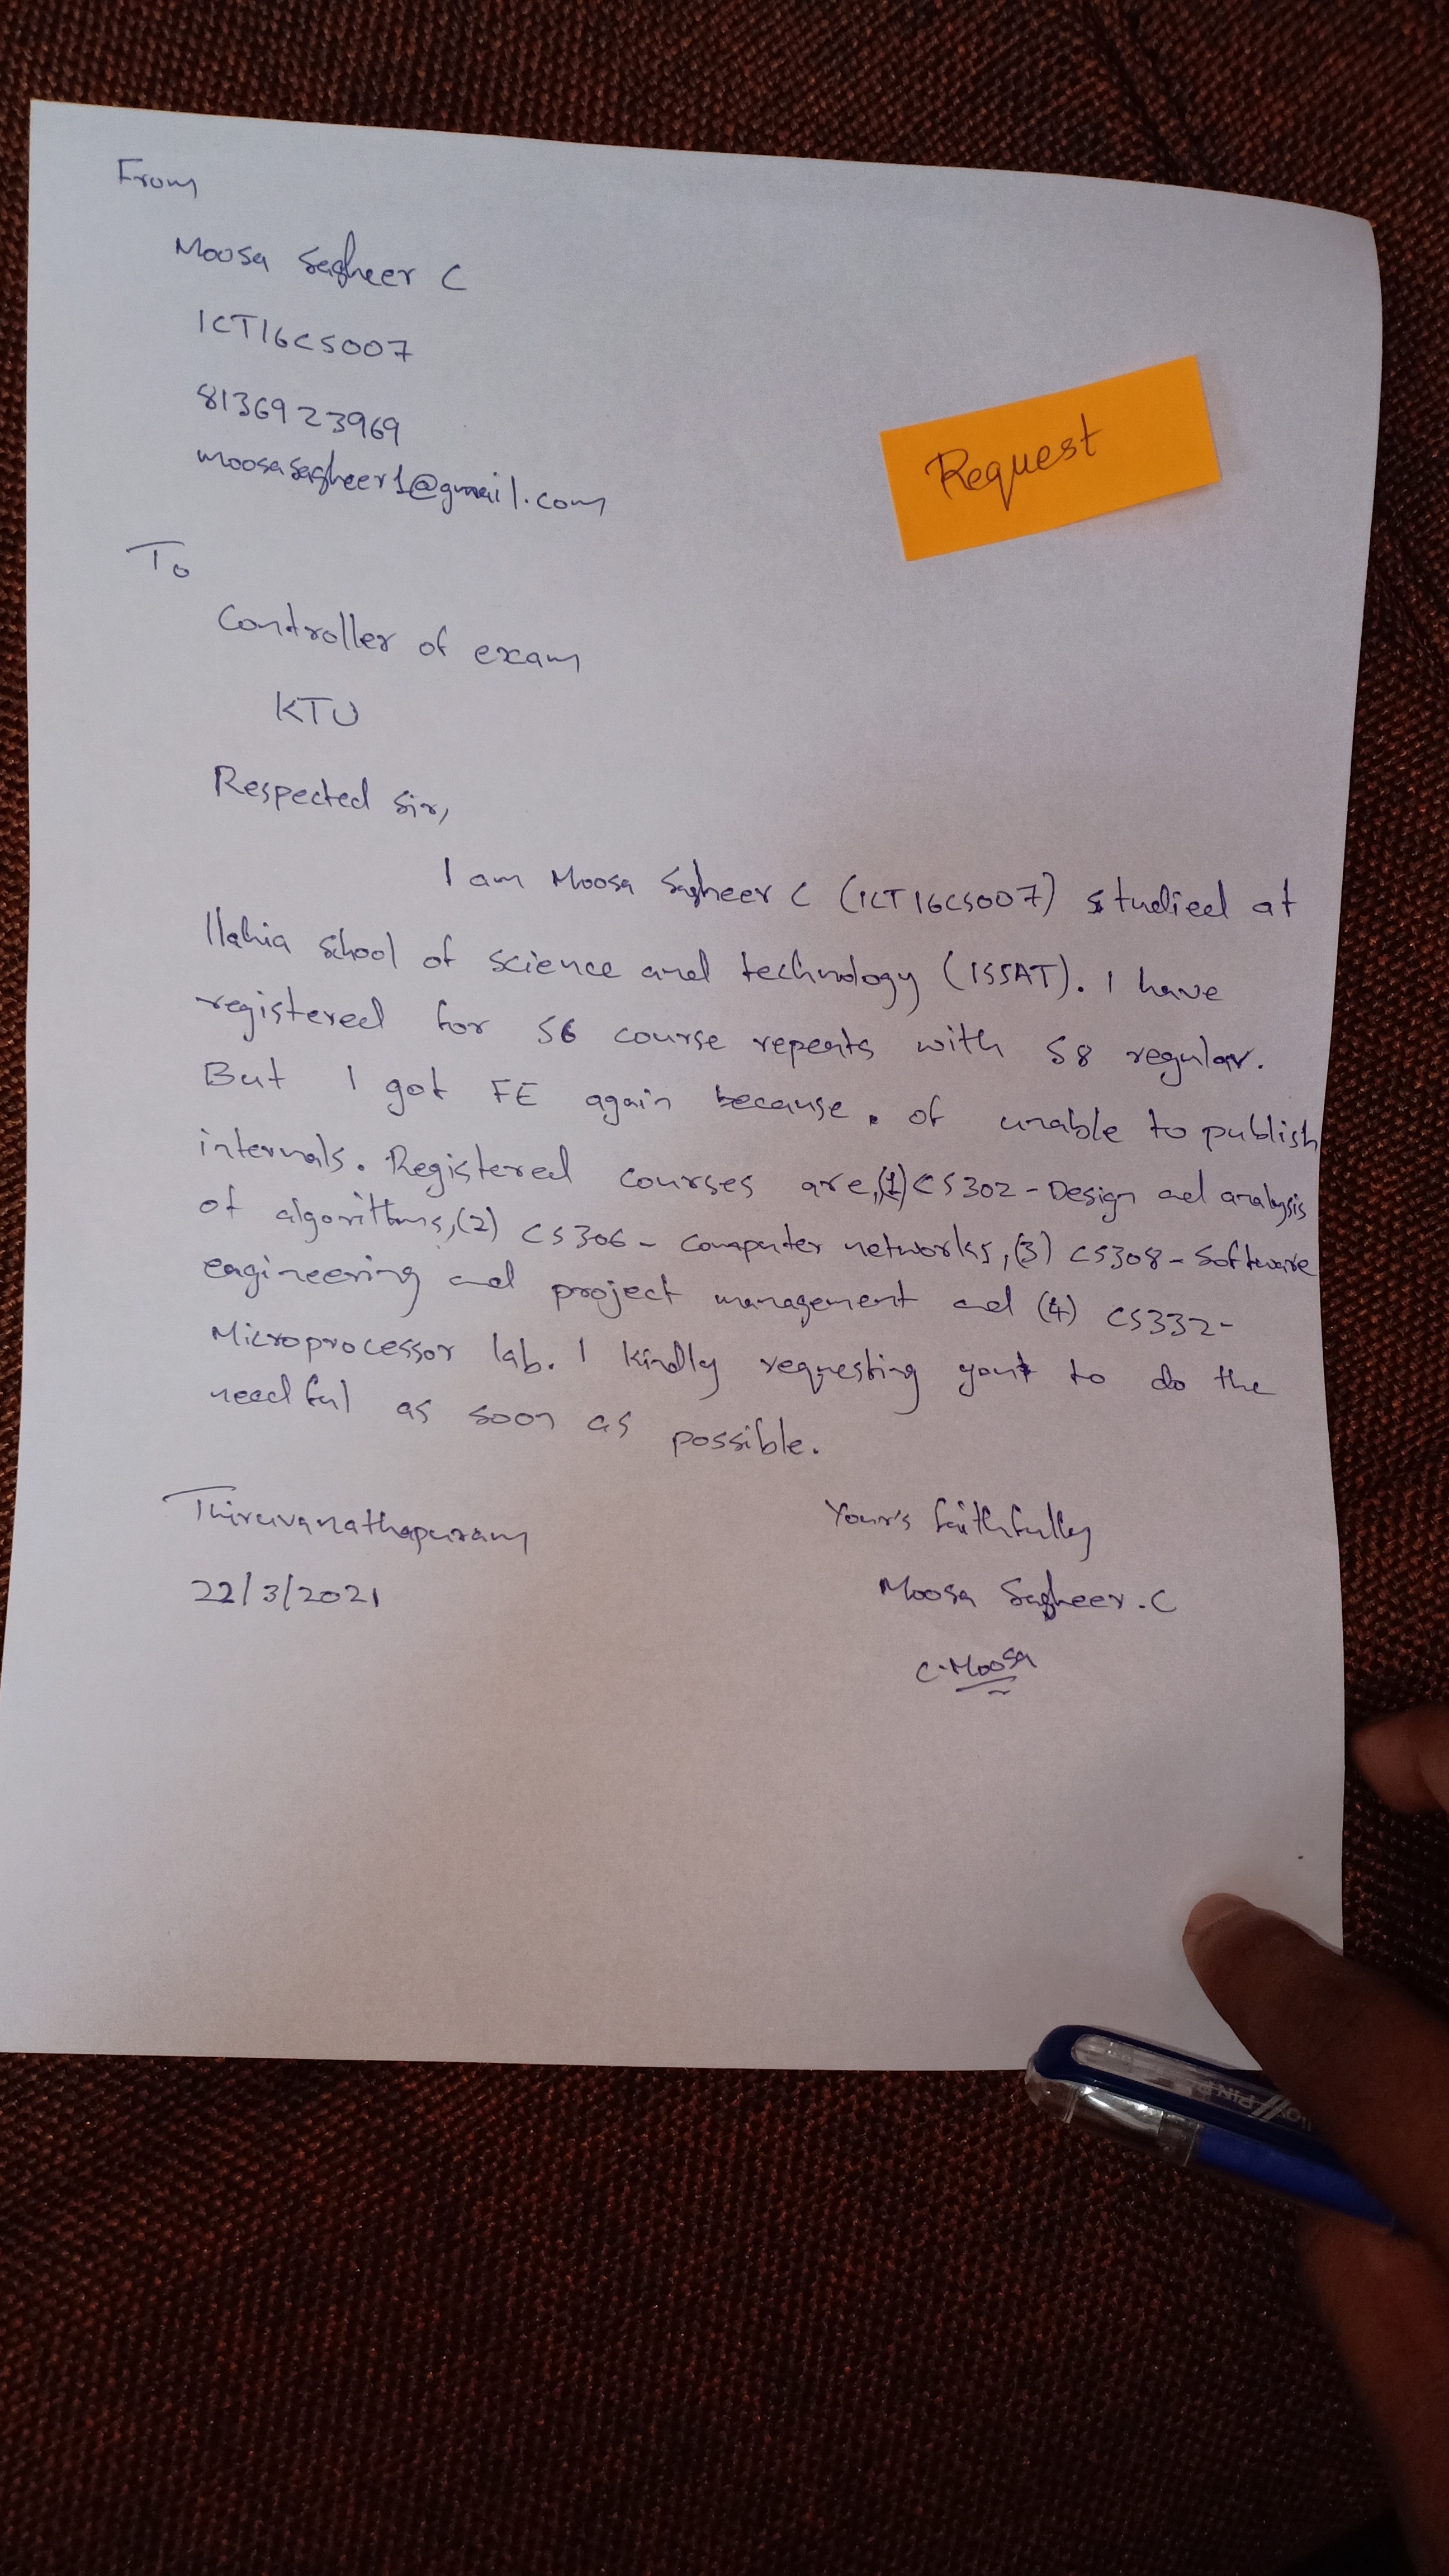 From
Moosa Sagheer C
ICT16CS007
8136923969
moosasagheer1@gmail.com
Request
To
Controller of exam
KTU
Respected sir,
I am Moosa Sagheer C (ICT16CS007) studied at
Ilahia School of science and technology (ISSAT). I have
registered for S6 course repeats with S8 regular.
But I got FE again because. of unable to publish
internals. Registered courses are,(1) CS302 - Design and analysis
of algorithms,(2) CS306 - Computer networks,(3) CS308 - Software
engineering and project management and (4) CS332-
Microprocessor lab. I kindly requesting you to do the
needful as soon as possible.
Thiruvanathapuram
22/3/2021
Your's faithfully
Moosa Sagheer.C
C.Moosa